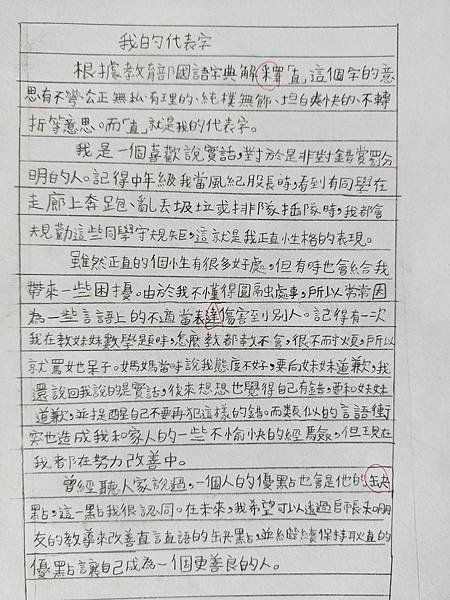 我的代表字
根據教育部國語字典解釋「直」這個字的意
思有不彎、公正無私、有理的、純樸無飾、坦白爽快的、不轉
折等意思。而「直」就是我的代表字。
我是一個喜歡說實話,對於是非對錯賞罰分
明的人。記得中年級我當風紀股長時,看到有同學在
走廊上奔跑、亂丟垃圾或排隊插隊時,我都會
規勸這些同學守規矩,這就是我正直性格的表現。
雖然正直的個性有很多好處,但有時也會給我
帶來一些困擾。由於我不懂得圓融處事,所以常常因
為一些言語上的不適當表達傷害到別人。記得有一次
我在教妹妹數學題時,怎麼教都教不會,很不耐煩,所以
就罵她呆子。媽媽當時說我態度不好,要向妹妹道歉,我
還說回我說的是實話,後來想想也覺得自己有錯,要和妹妹
道歉,並提醒自己不要再犯這樣的錯。而類似的言語衝
突也造成我和家人的一些不愉快的經驗,但現在
我都在努力改善中。
曾經聽人家說過,一個人的優點也會是他的缺
點,這一點我很認同。在未來,我希望可以透過師長和朋
友的教導來改善直言直語的缺點,並繼續保持耿直的
優點讓自己成為一個更善良的人。